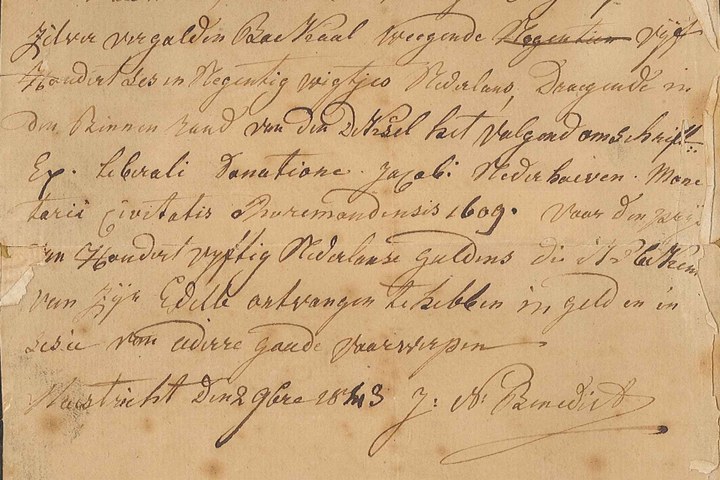 Zilver vergulden Bockaal weegende Negentien vyf
Hondert ses en Negentig wigtjes Nederlans, Draegende in
den Binnen rand van den Deksel het volgend omschrift:
Ex. Liberali Donatione. Jacobi. Nederhoeven. Mone
tarii Civitatis Ruremondensis 1609. voor den prijs
van Hondert vyftig Nederlanse guldens die ik
van zijn Edelle ontvangen te hebben in geld en in
van andere goude voorwerpen
Mastricht Den 2 9bre 1843 J: N. Benedict